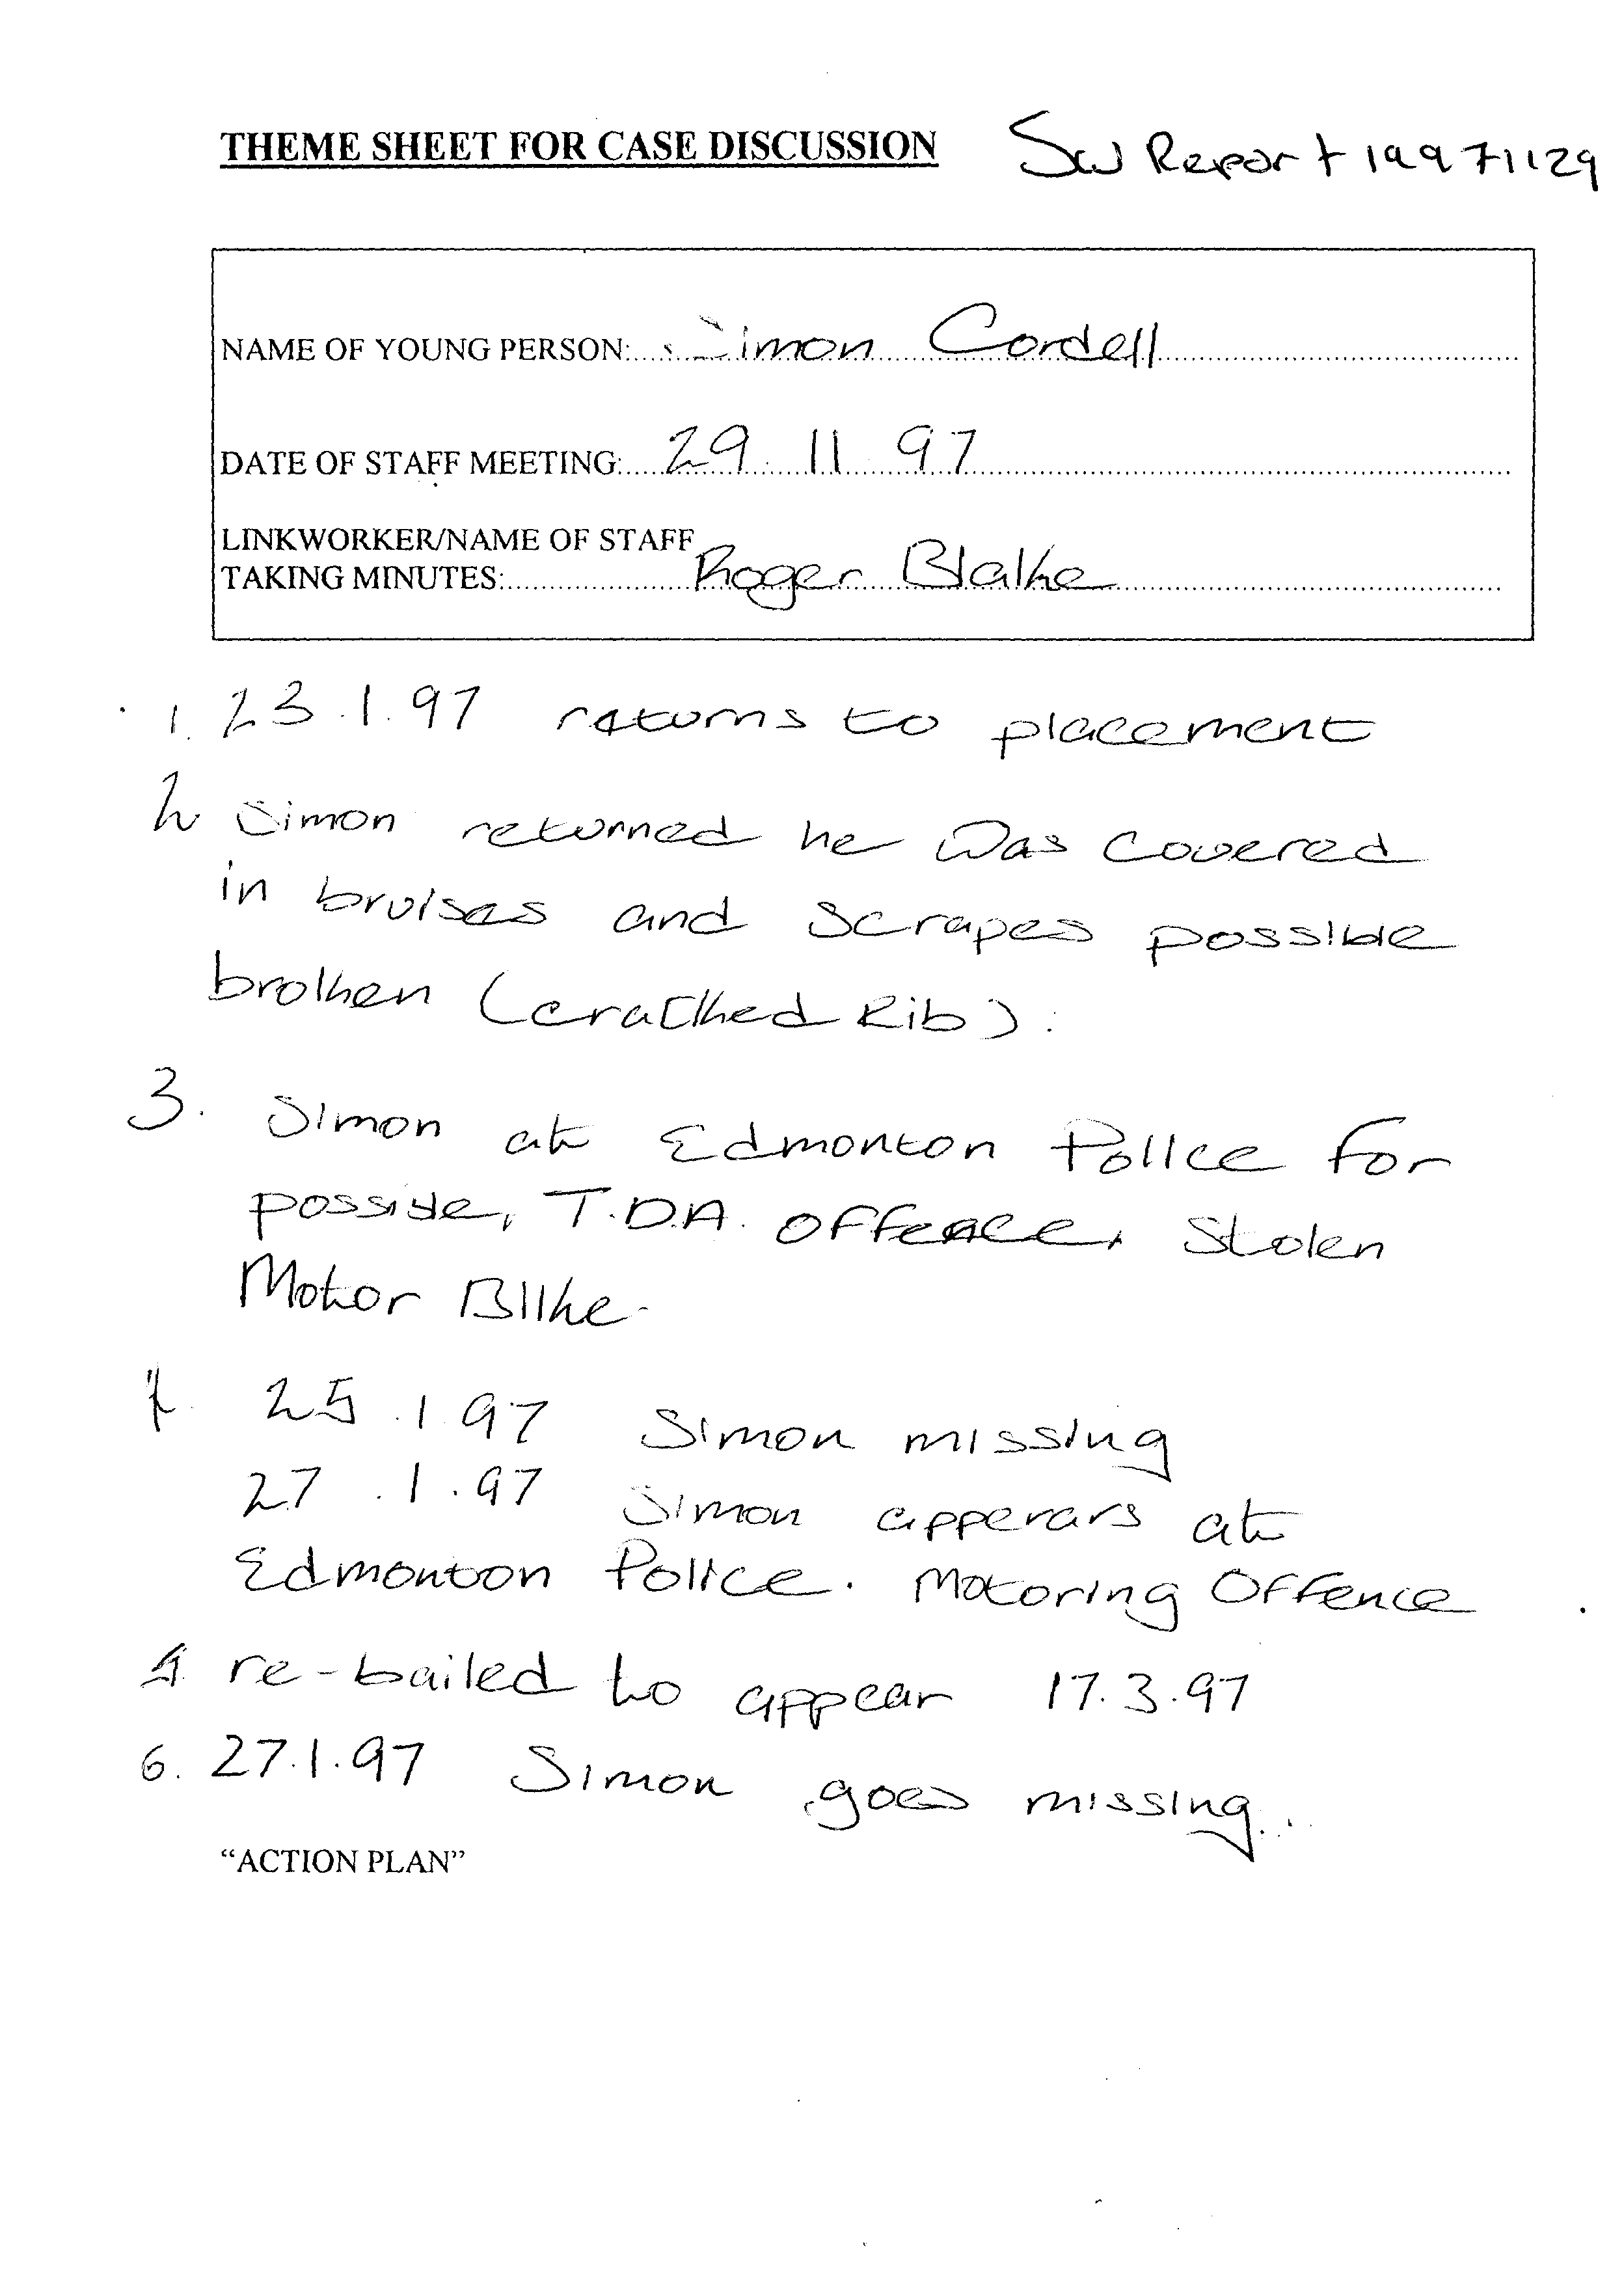 THEME SHEET FOR CASE DISCUSSION
SW Report 19971129
NAME OF YOUNG PERSON: Simon Cordell
DATE OF STAFF MEETING: 29 11 97
LINKWORKER/NAME OF STAFF
TAKING MINUTES: Roger Blake
1. 23.1.97 returns to placement
2 Simon returned he was covered
in bruises and scrapes possible
broken (cracked Rib).
3. Simon at Edmonton Police for
possible, T.D.A. offence, Stolen
Motor Bike
25.1.97 Simon missing
27.1.97 Simon apperars at
Edmonton Police. Motoring Offence
re-bailed to appear 17.3.97
6. 27.1.97 Simon goes missing..
"ACTION PLAN"